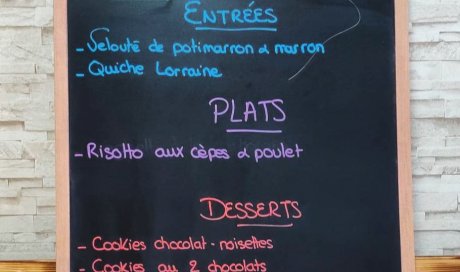 ENTRÉES
- Velouté de potimarron & marron
- Quiche Lorraine
PLATS
- Risotto aux cèpes & poulet
DESSERTS
- Cookies chocolat - noisettes
- Cookies au 2 chocolats